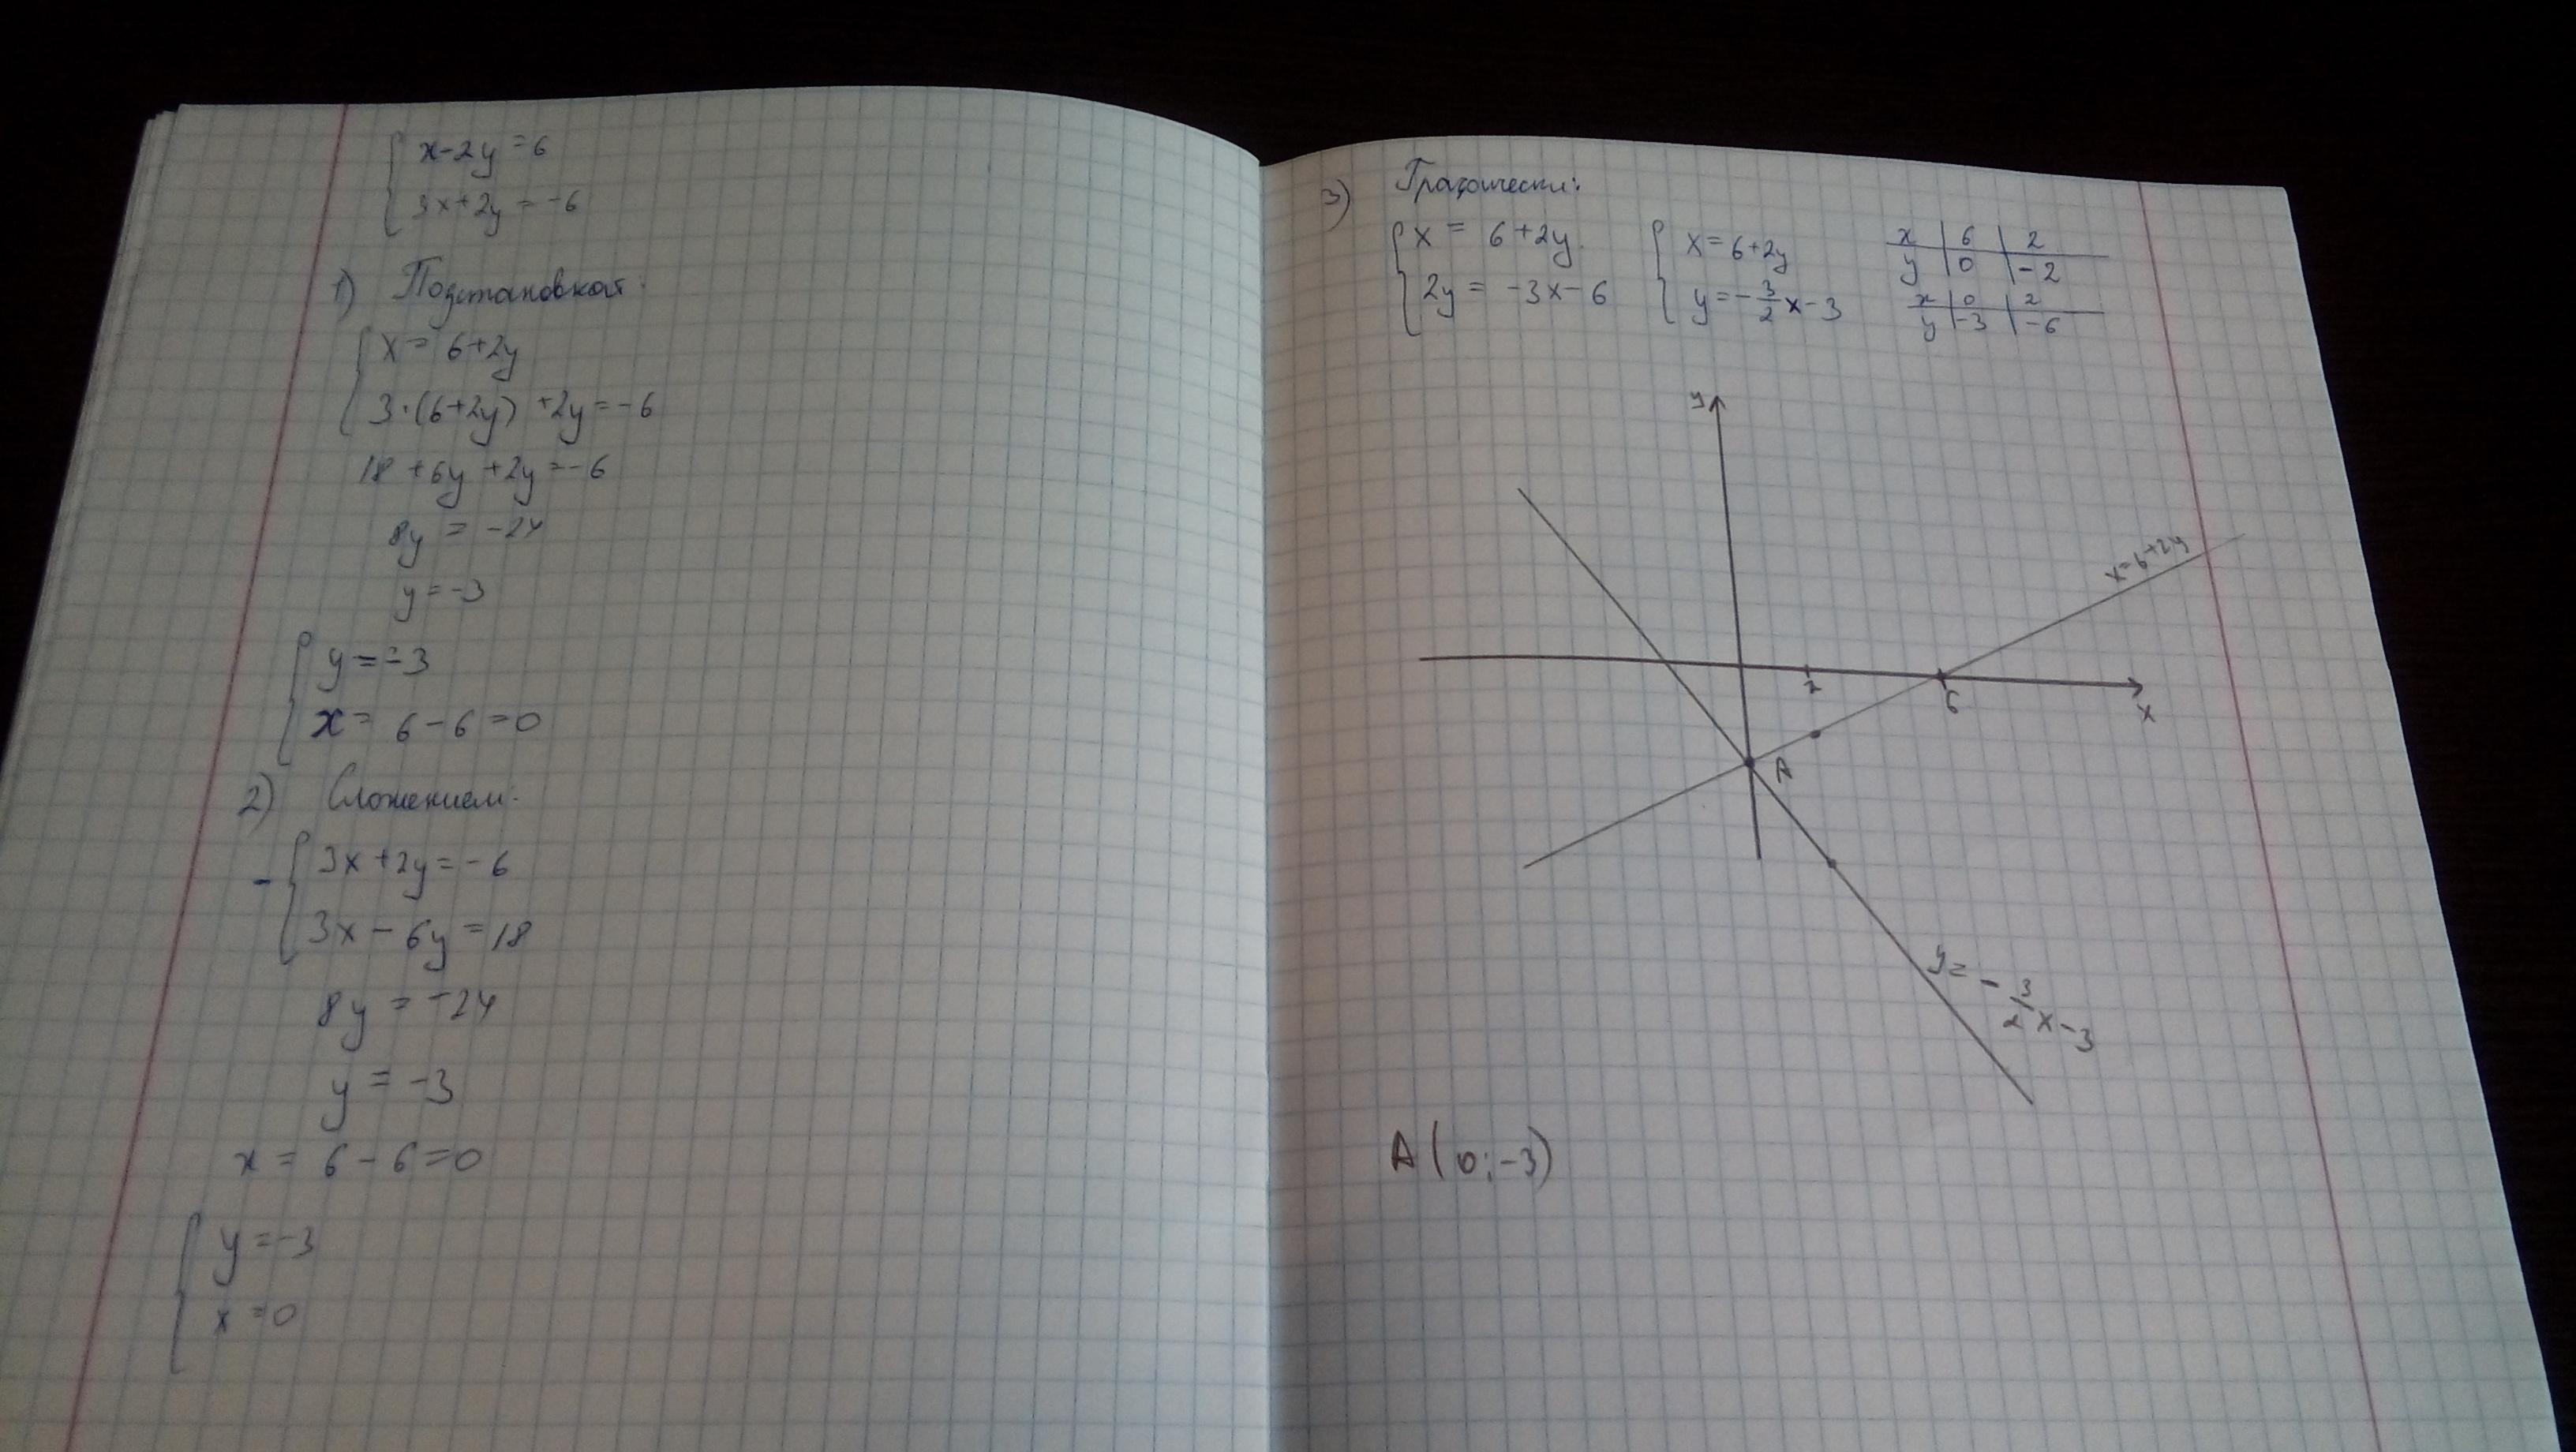 x-2y=6
3x+2y=-6
1) Подстановкой:
x=6+2y
3·(6+2y)+2y=-6
18+6y+2y=-6
8y=-24
y=-3
y=-3
x=6-6=0
2) Сложением:
- 3x+2y=-6
3x-6y=18
8y=-24
y=-3
x=6-6=0
y=-3
x=0
3) Графически:
x=6+2y
2y=-3x-6
x=6+2y
y=-3/2x-3
x | 6 | 2
y | 0 | -2
x | 0 | 2
y | -3 | -6
y
x=6+2y
2
6
x
A
y=-3/2x-3
A(0;-3)